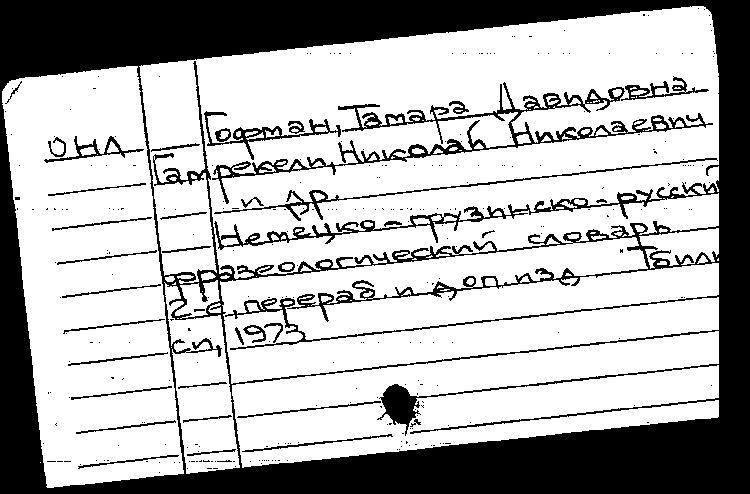 Гофман, Тамара Давидовна.
ОНЛ
Гамрекели, Николай Николаевич
и др.
Немецко-грузинско-русский
фразеологический словарь
2-е, перераб. и доп. изд. Тбили
си, 1973